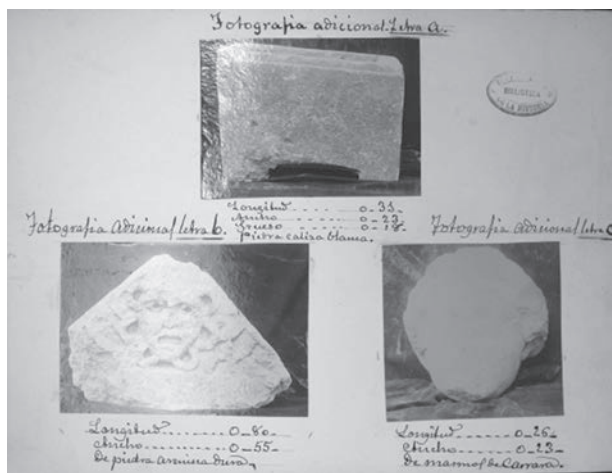 Fotografia adicional. Letra a.
BIBLIOTECA
Longitud ......... 0-33
Ancho ......... 0-23
Grueso ......... 0-18
Piedra caliza blanca.
Fotografia adicional letra b.
Longitud ......... 0-80
Ancho ......... 0-55
De piedra arenisca dura.
Fotografia adicional letra c
Longitud ......... 0-26
Ancho ......... 0-23
De marmol de Carrara.